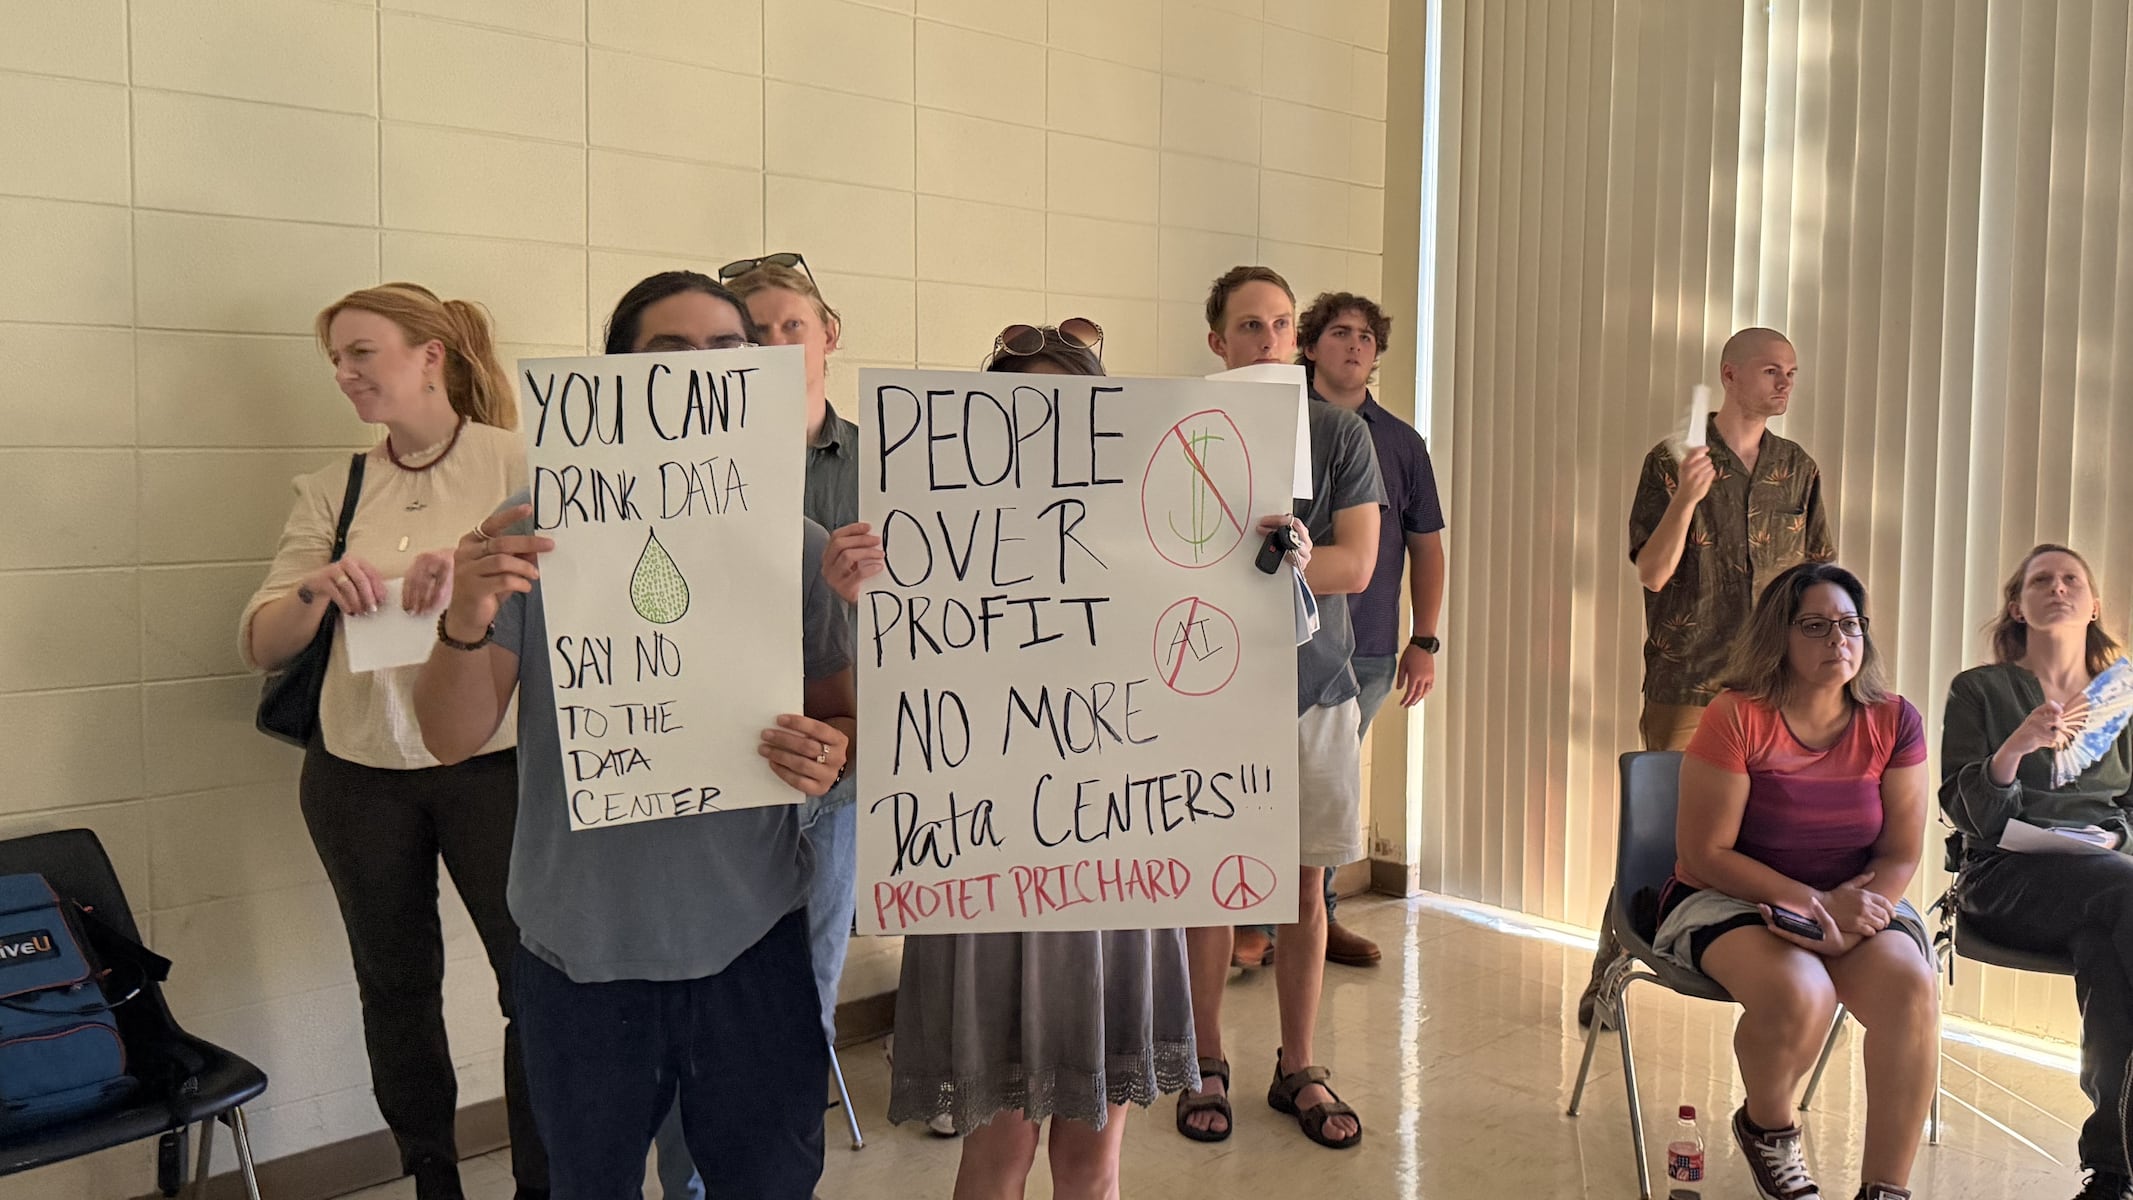 YOU CAN'T
DRINK DATA
SAY NO
TO THE
DATA
CENTER
PEOPLE
OVER
PROFIT
$
AI
NO MORE
Data CENTERS!!!
PROTET PRICHARD
iveU